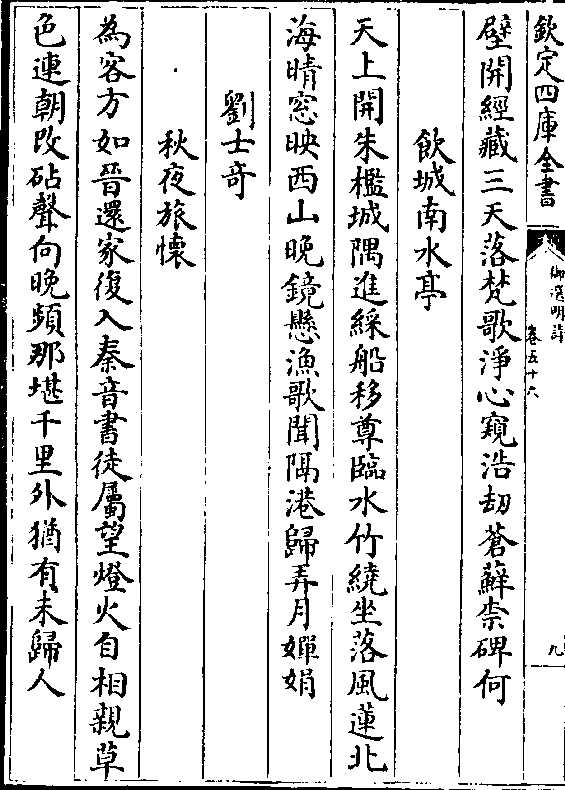 欽定四庫全書
御選明詩
卷五十六
九
壁開經藏三天落梵歌淨心窺浩刼蒼蘚崇碑何
飲城南水亭
天上開朱檻城隅進綵船移尊臨水竹繞坐落風蓮北
海晴窓映西山晚鏡懸漁歌聞隔港歸弄月嬋娟
劉士奇
秋夜旅懷
為客方如晉還家復入秦音書徒屬望燈火自相親草
色連朝改砧聲向晚頻那堪千里外猶有未歸人